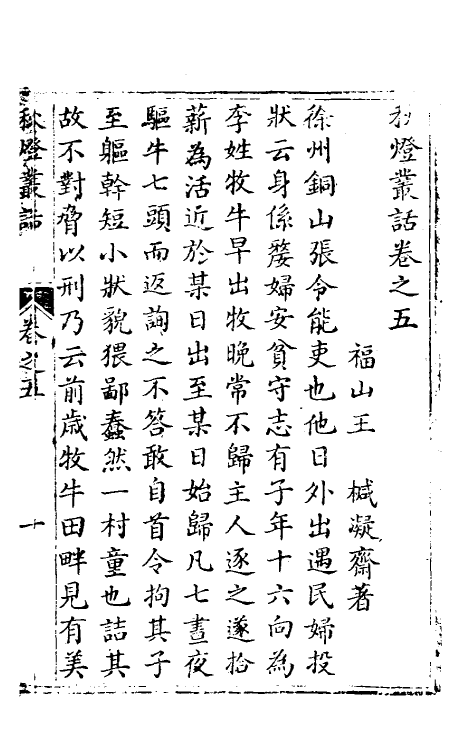 秋燈叢話卷之五
福山王 椷凝齋著
徐州銅山張令能吏也他日外出遇民婦投
狀云身係嫠婦安貧守志有子年十六向為
李姓牧牛早出牧晚常不歸主人逐之遂拾
薪為活近於某日出至某日始歸凡七晝夜
驅牛七頭而返詢之不答敢自首令拘其子
至軀幹短小狀貌猥鄙蠢然一村童也詰其
故不對脅以刑乃云前歲牧牛田畔見有美
秋燈叢話
卷之五
十